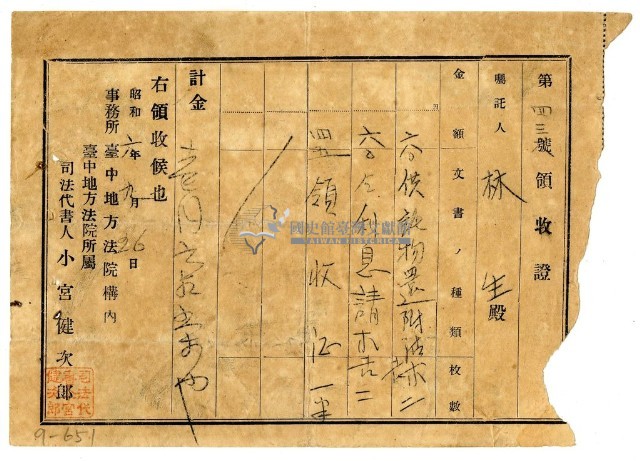 第四三號領收證
囑託人 林 生殿
金額 文書ノ種類 枚數
円
供託物還付請求 二
利息請求書 二
領收証 一
計金
右領收候也
昭和六年九月26日
事務所 臺中地方法院構內
臺中地方法院所屬
司法代書人 小宮健次郎
司法代
書人小宮
健次郎
國史館臺灣文獻館
TAIWAN HISTORICA
9-651